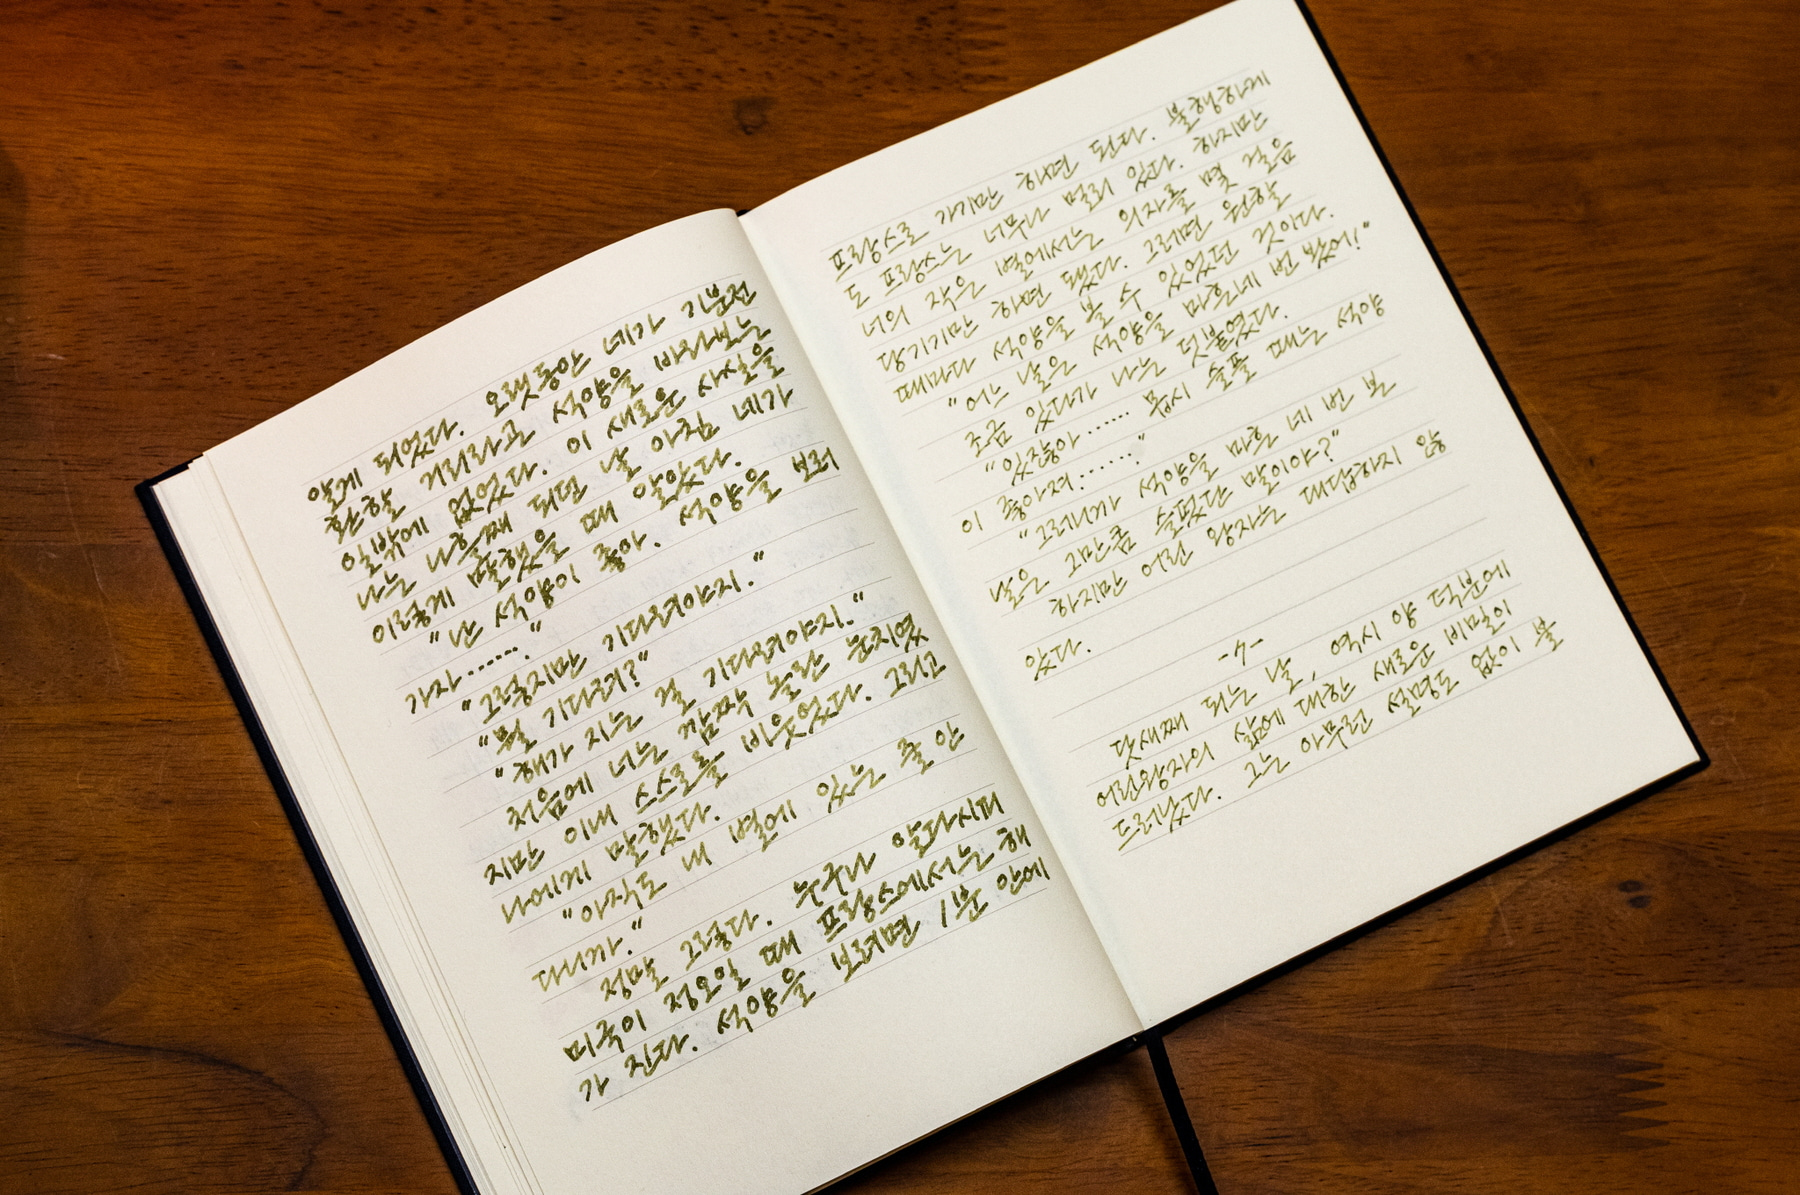 알게 되었다. 오랫동안 네가 기분전
환할 거리라고 석양을 바라보는
일밖에 없었다. 이 새로운 사실을
나는 나흘째 되던 날 아침 네가
이렇게 말했을 때 알았다.
"난 석양이 좋아. 석양을 보러
가자……"
"그렇지만 기다려야지."
"뭘 기다려?"
"해가 지는 걸 기다려야지."
처음에 너는 깜짝 놀란 눈치였
지만 이내 스스로를 비웃었다. 그리고
나에게 말했다.
"아직도 내 별에 있는 줄 안
다니까."
정말 그렇다. 누구나 알다시피
미국이 정오일 때 프랑스에서는 해
가 진다. 석양을 보려면 1분 안에
프랑스로 가기만 하면 된다. 불행하게
도 프랑스는 너무나 멀리 있다. 하지만
너의 작은 별에서는 의자를 몇 걸음
당기기만 하면 됐다. 그러면 원할
때마다 석양을 볼 수 있었던 것이다.
"어느 날은 석양을 마흔네 번 봤어!"
조금 있다가 너는 덧붙였다.
"있잖아…… 몹시 슬플 때는 석양
이 좋아져……"
"그러니까 석양을 마흔 네 번 본
날은 그만큼 슬펐단 말이야?"
하지만 어린 왕자는 대답하지 않
았다.
-7-
닷새째 되는 날, 역시 양 덕분에
어린왕자의 삶에 대한 새로운 비밀이
드러났다. 그는 아무런 설명도 없이 불